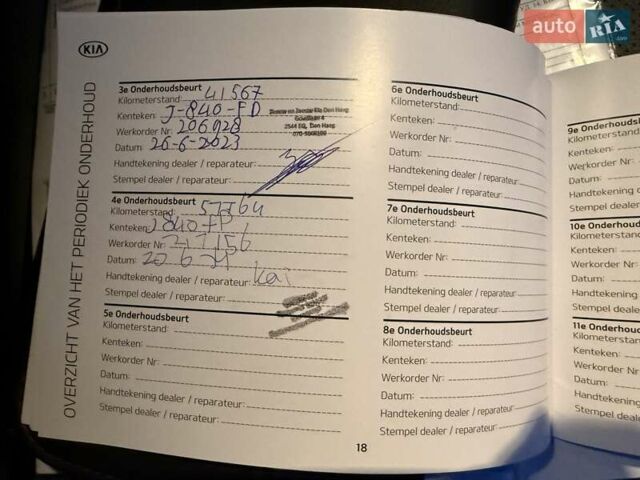 auto RIA .com
KIA
OVERZICHT VAN HET PERIODIEK ONDERHOUD
3e Onderhoudsbeurt
Kilometerstand: 41567
Kenteken: J-840-FD
Werkorder Nr: 206928
Datum: 26-6-2023
Handtekening dealer / reparateur:
Stempel dealer / reparateur:
Den Haag
4e Onderhoudsbeurt
Kilometerstand: 57764
Kenteken:
Werkorder Nr: 217156
Datum: 20 6 24
Handtekening dealer / reparateur:
Stempel dealer / reparateur:
5e Onderhoudsbeurt
Kilometerstand:
Kenteken:
Werkorder Nr:
Datum:
Handtekening dealer / reparateur:
Stempel dealer / reparateur:
6e Onderhoudsbeurt
Kilometerstand:
Kenteken:
Werkorder Nr:
Datum:
Handtekening dealer / reparateur:
Stempel dealer / reparateur:
7e Onderhoudsbeurt
Kilometerstand:
Kenteken:
Werkorder Nr:
Datum:
Handtekening dealer / reparateur:
Stempel dealer / reparateur:
8e Onderhoudsbeurt
Kilometerstand:
Kenteken:
Werkorder Nr:
Datum:
Handtekening dealer / reparateur:
Stempel dealer / reparateur:
18
9e Onderhouds
Kilometerstand:
Kenteken:
Werkorder Nr:
Datum:
Handtekening
Stempel deale
10e Onderho
Kilometerstan
Kenteken:
Werkorder N
Datum:
Handtekening
Stempel deal
11e Onderhou
Kilometersta
Kenteken:
Werkorder N
Datum:
Handtekenin
Stempel dea